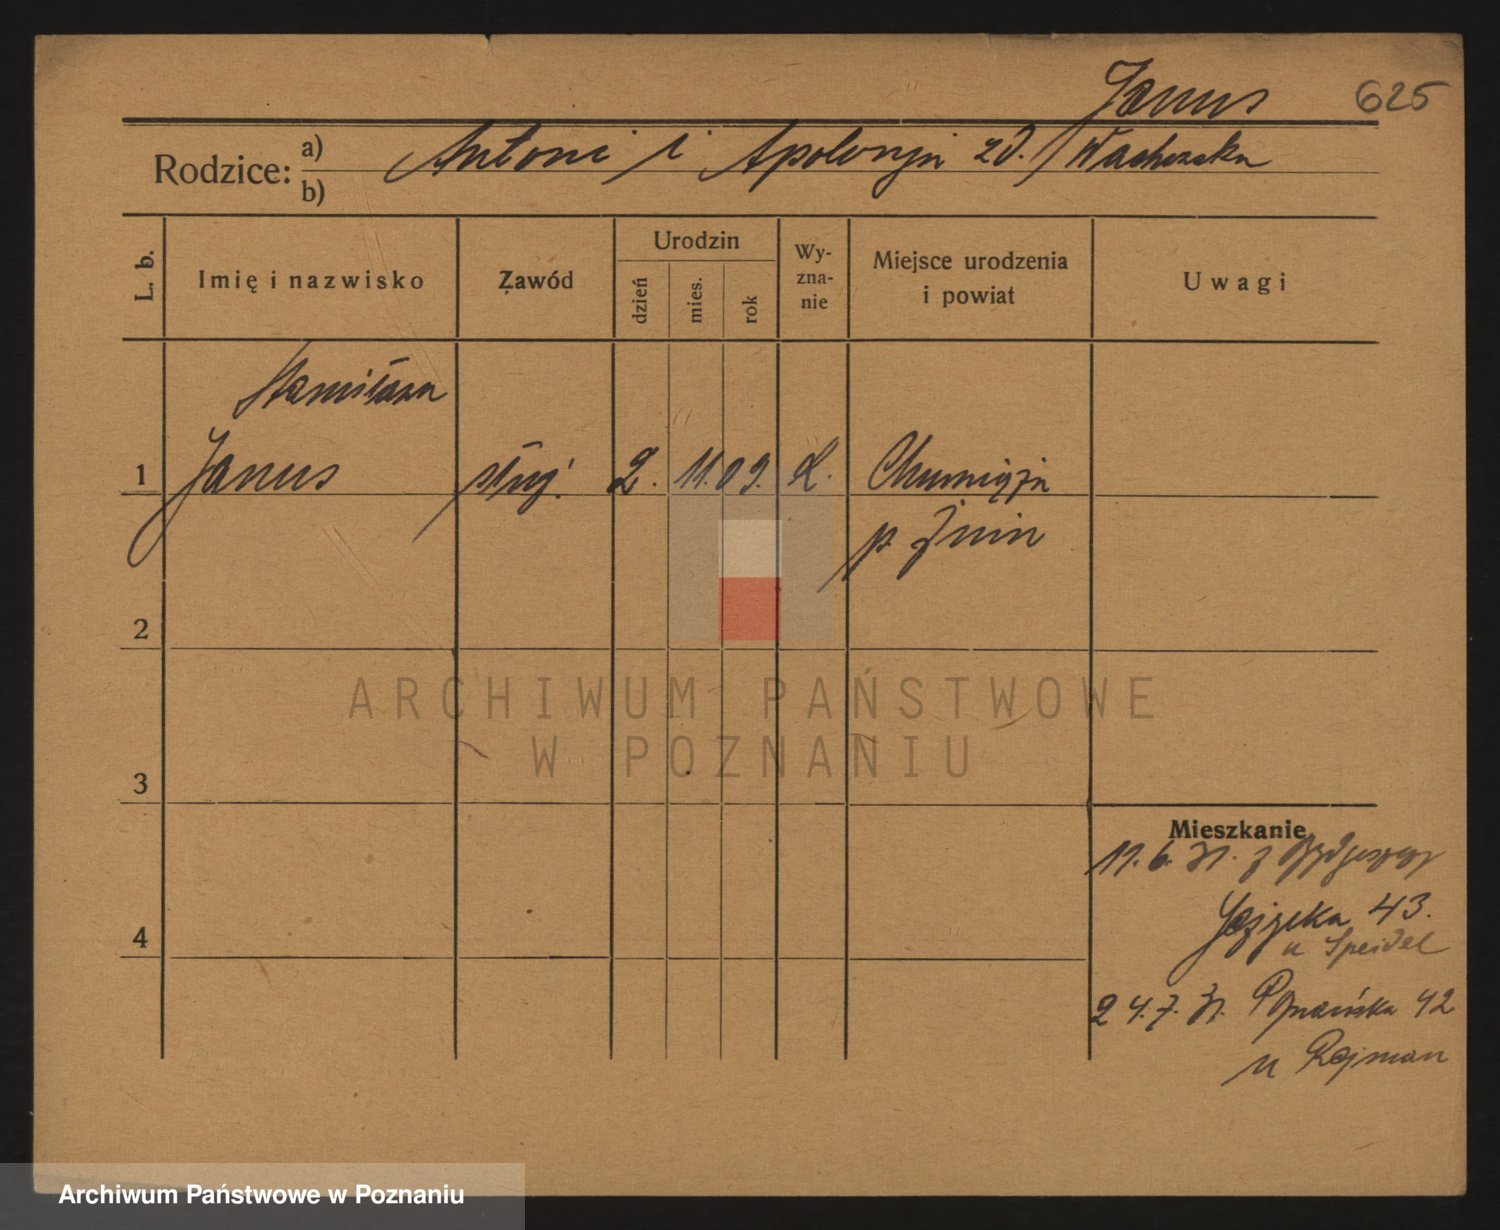 Janus 625
Rodzice: a) Antoni i Apolonja zd. Wachecka
b)
L. b. Imię i nazwisko Zawód Urodzin dzień mies. rok Wy-zna-nie Miejsce urodzenia i powiat Uwagi
Stanisława
1 Janus służ. 2. 11. 09. k. Chomiąża
p. Żnin
2
ARCHIWUM PAŃSTWOWE
W POZNANIU
3
Mieszkanie
11. 6. 31. z Bydgoszczy
43.
4
u Speidel
24. 7. 31. Poznańska 42
u Rejman
Archiwum Państwowe w Poznaniu